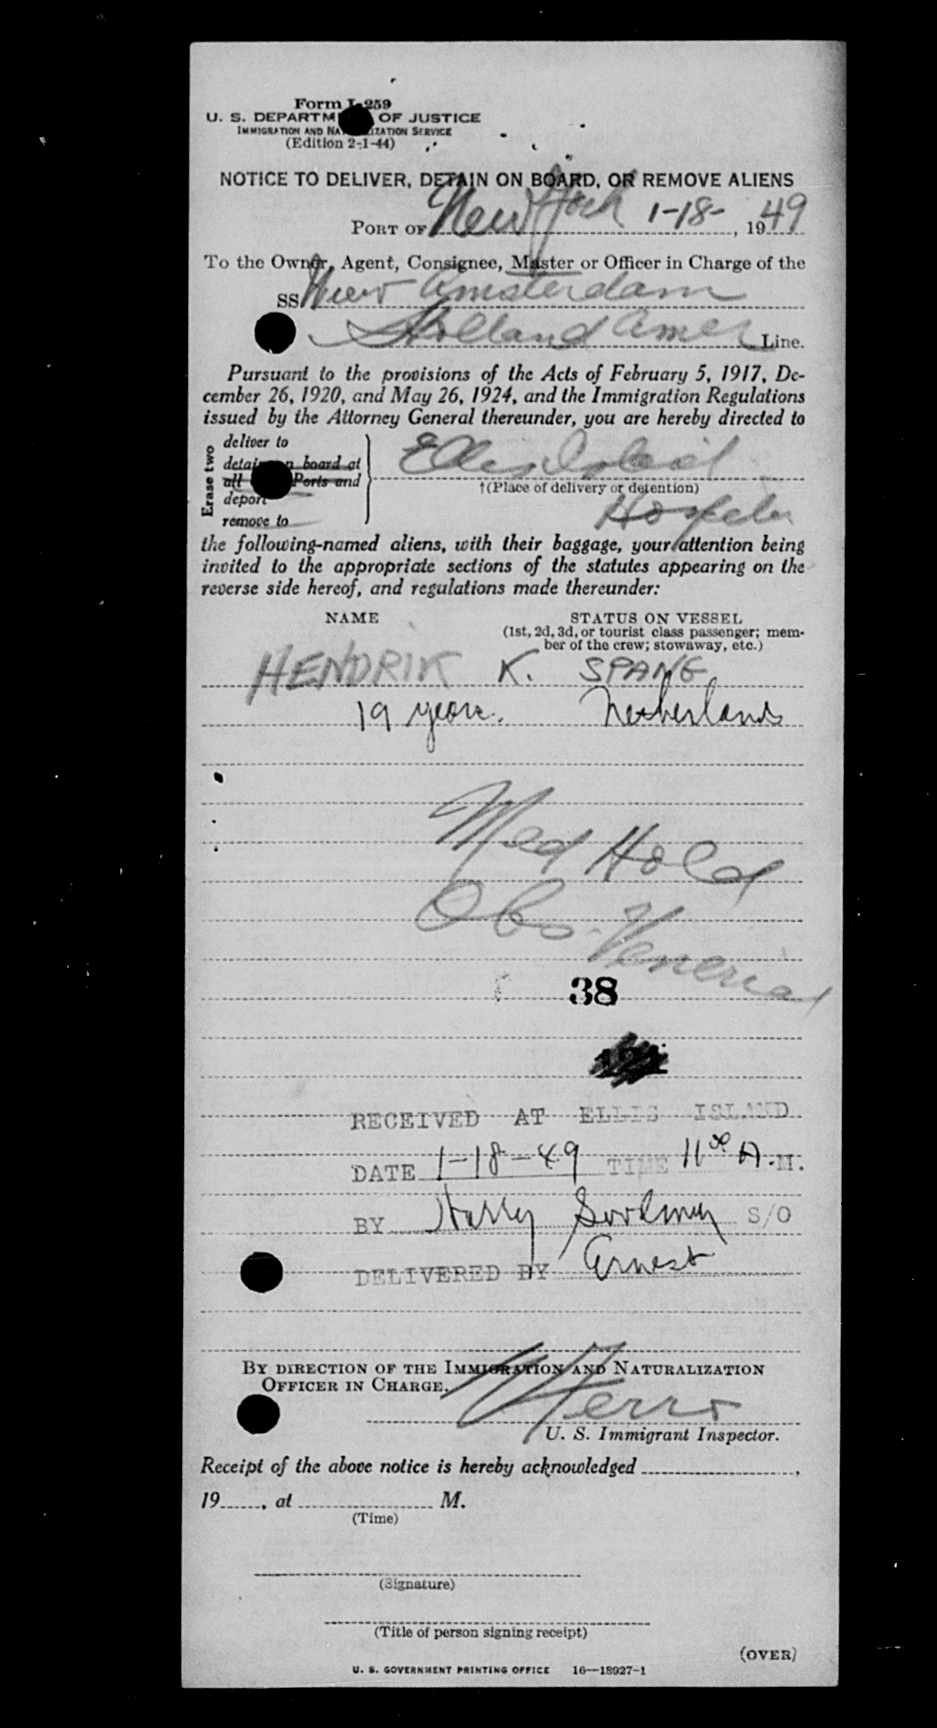 Form I-259
U. S. DEPARTMENT OF JUSTICE
IMMIGRATION AND NATURALIZATION SERVICE
(Edition 2-1-44)
NOTICE TO DELIVER, DETAIN ON BOARD, OR REMOVE ALIENS
PORT OF New York 1-18-, 1949
To the Owner, Agent, Consignee, Master or Officer in Charge of the
SS Nieuw Amsterdam
Holland Amer Line.
Pursuant to the provisions of the Acts of February 5, 1917, De-
cember 26, 1920, and May 26, 1924, and the Immigration Regulations
issued by the Attorney General thereunder, you are hereby directed to
Erase two
deliver to
detain on board at
all Ports and
deport
remove to
Ellis Island
†(Place of delivery or detention)
the following-named aliens, with their baggage, your attention being
invited to the appropriate sections of the statutes appearing on the
reverse side hereof, and regulations made thereunder:
NAME STATUS ON VESSEL
(1st, 2d, 3d, or tourist class passenger; mem-
ber of the crew; stowaway, etc.)
HENDRIK K. SPANG
19 years. Netherlands
Med Hold
Obs. Venerial
38
RECEIVED AT ELLIS ISLAND
DATE 1-18-49 TIME 11 A.M.
BY Harry S/O
DELIVERED BY Ernest
BY DIRECTION OF THE IMMIGRATION AND NATURALIZATION
OFFICER IN CHARGE.
U. S. Immigrant Inspector.
Receipt of the above notice is hereby acknowledged ,
19 , at M.
(Time)
(Signature)
(Title of person signing receipt)
(OVER)
U. S. GOVERNMENT PRINTING OFFICE 16—18927-1